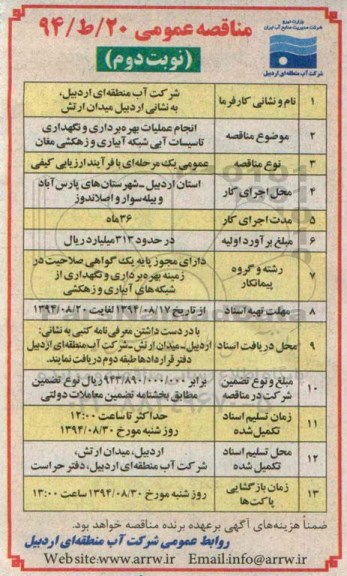 وزارت نیرو
شرکت مدیریت منابع آب ایران
شرکت آب منطقه‌ای اردبیل
مناقصه عمومی ۲۰/ط/۹۴
(نوبت دوم)
۱ نام و نشانی کارفرما شرکت آب منطقه‌ای اردبیل،
به نشانی اردبیل میدان ارتش
۲ موضوع مناقصه انجام عملیات بهره‌برداری و نگهداری
تاسیسات آبی شبکه آبیاری و زهکشی مغان
۳ نوع مناقصه عمومی یک مرحله‌ای با فرآیند ارزیابی کیفی
۴ محل اجرای کار استان اردبیل ـ شهرستان‌های پارس‌آباد
و بیله‌سوار و اصلاندوز
۵ مدت اجرای کار ۳۶ماه
۶ مبلغ برآورد اولیه در حدود ۳۱۳میلیارد ریال
۷ رشته و گروه پیمانکار دارای مجوز پایه یک گواهی صلاحیت در
زمینه بهره‌برداری و نگهداری از
شبکه‌های آبیاری و زهکشی
۸ مهلت تهیه اسناد از تاریخ ۱۳۹۴/۰۸/۱۷ لغایت ۱۳۹۴/۰۸/۲۰
۹ محل دریافت اسناد با در دست داشتن معرفی‌نامه کتبی به نشانی:
اردبیل ـ میدان ارتش ـ شرکت آب منطقه‌ای اردبیل
دفتر قراردادها طبقه دوم دریافت نمایند.
۱۰ مبلغ و نوع تضمین
شرکت در مناقصه برابر ۹۴۳/۸۹۰/۰۰۰/۰۰۰ ریال نوع تضمین
مطابق بخشنامه تضمین معاملات دولتی
۱۱ زمان تسلیم اسناد
تکمیل‌شده حداکثر تا ساعت ۱۲:۰۰
روز شنبه مورخ ۱۳۹۴/۰۸/۳۰
۱۲ محل تسلیم اسناد
تکمیل‌شده اردبیل، میدان ارتش،
شرکت آب منطقه‌ای اردبیل، دفتر حراست
۱۳ زمان بازگشایی
پاکت‌ها روز شنبه مورخ ۱۳۹۴/۰۸/۳۰ ساعت ۱۳:۰۰
ضمناً هزینه‌های آگهی برعهده برنده مناقصه خواهد بود.
روابط عمومی شرکت آب منطقه‌ای اردبیل
Web site:www.arrw.ir Email:info@arrw.ir